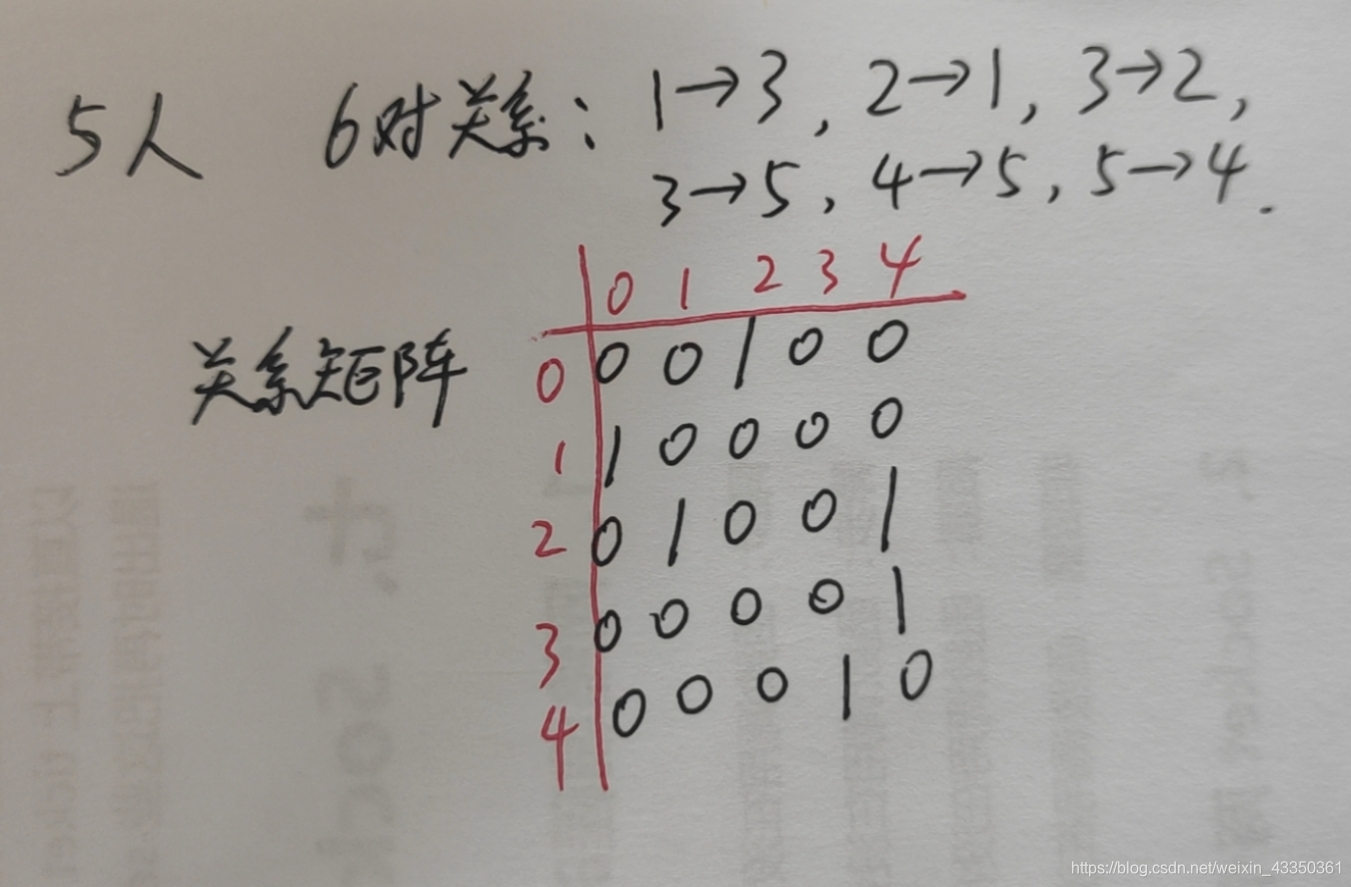 5人 6对关系: 1→3, 2→1, 3→2,
3→5, 4→5, 5→4.
0 1 2 3 4
关系矩阵 0 0 0 1 0 0
1 1 0 0 0 0
2 0 1 0 0 1
3 0 0 0 0 1
4 0 0 0 1 0
https://blog.csdn.net/weixin_43350361